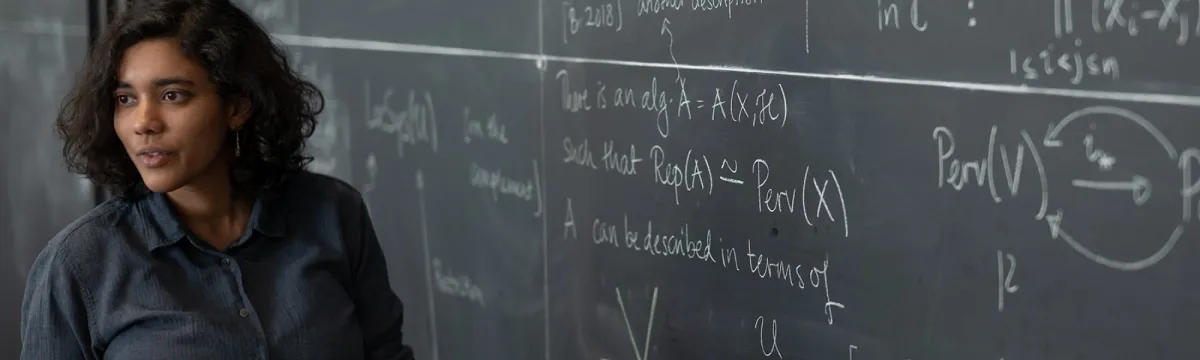 [B-2018] another description
in C :
∏ (xᵢ-xⱼ)
1≤i<j≤n
There is an alg. A = A(X,ℋ)
such that Rep(A) ≃ Perv(X)
A can be described in terms of
LocSys(U) (on the
complement)
Perv(V)
i*